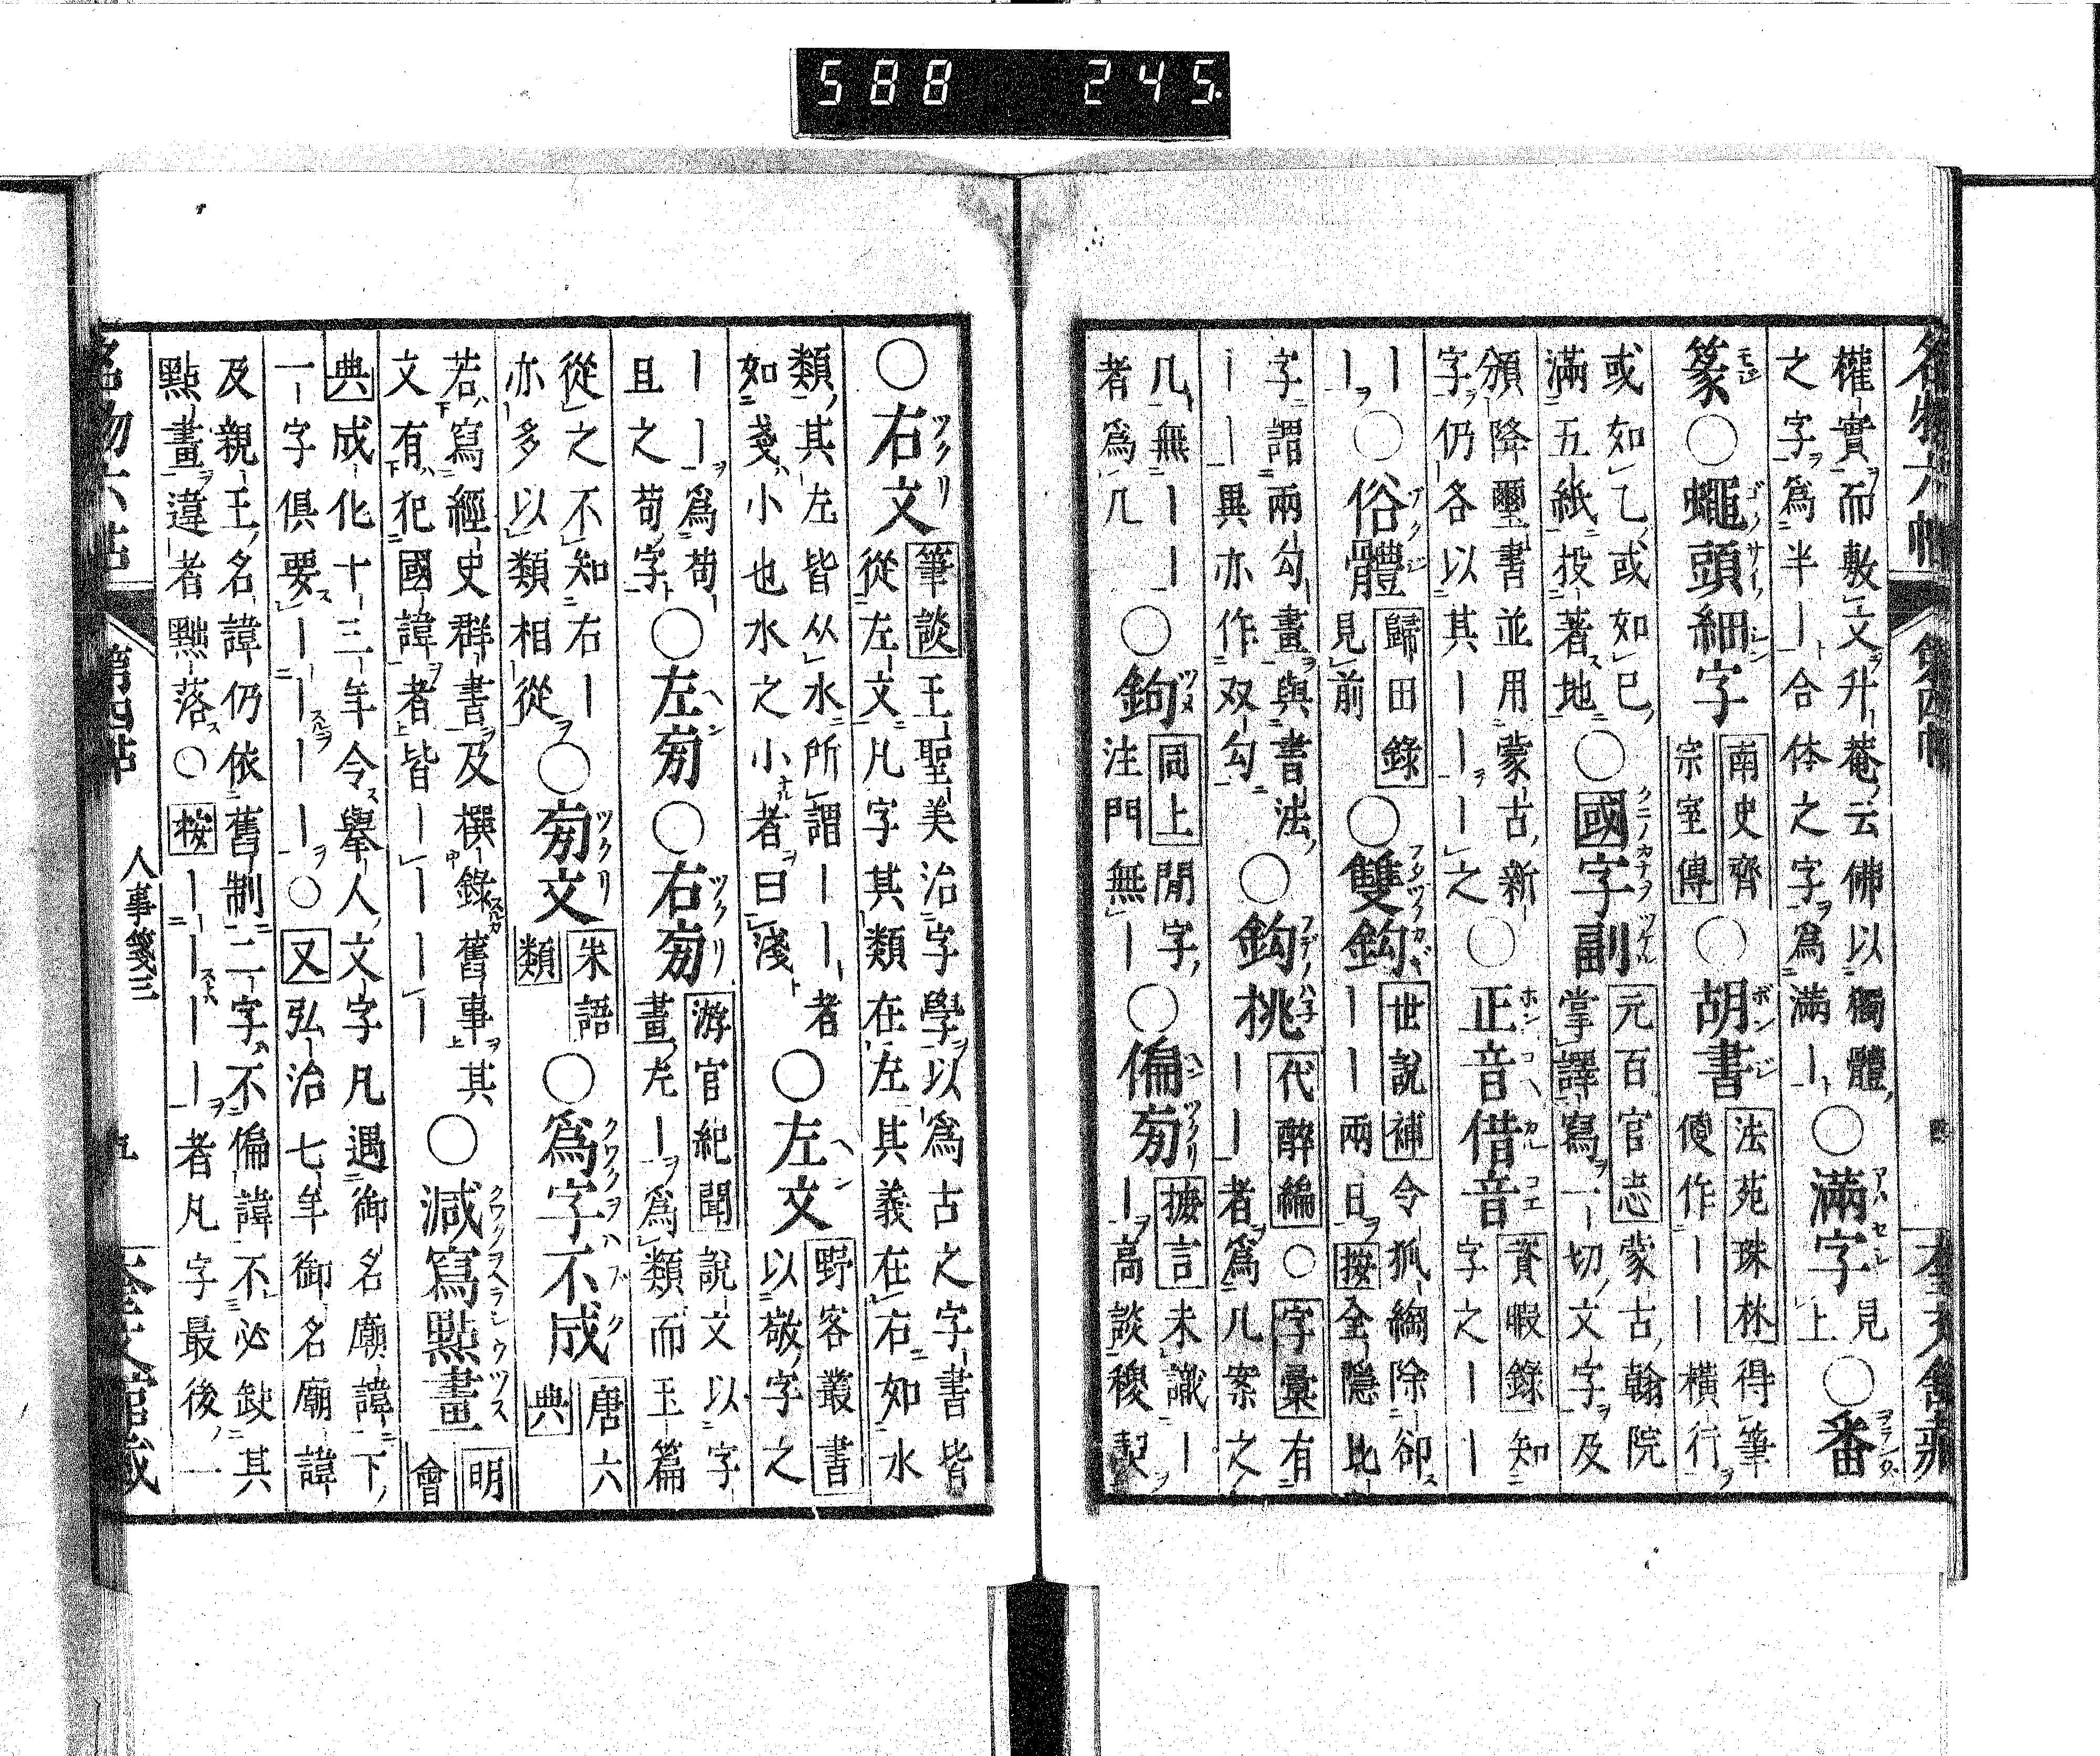 588 245
名物六帖 第四帖 四 奎文舘藏
權實而敷文升菴云佛以獨體
之字爲半｜合体之字爲滿｜
○滿字 見上 ○番
篆 ○蠅頭細字 南史齊宗室傳 ○胡書 法苑珠林 得筆
便作｜｜橫行
或如乙或如巳
滿五紙投著地 ○國字副 元百官志 蒙古翰院
掌譯寫一切文字及
頒降璽書並用蒙古新
字仍各以其｜｜｜之 ○正音借音 資暇錄 知
字之｜｜
｜
｜ ○俗體 歸田錄 見前 ○雙鈎 世說補 令狐綯除卻
｜｜兩日 按 全隱比
字謂兩勾畫與書法
｜｜異亦作双勾 ○鈎桃 代醉編 ○ 字彙 有
｜｜者爲几案之
几無｜｜
者爲几 ○鉤 同上 閒字
注門無｜ ○偏㫄 摭言 未識｜
｜高談稷契
○右文 筆談 王聖美治字學以爲古之字書皆
從左文凡字其類在左其義在右如水
類其左皆从水所謂｜｜者
如戔小也水之小者曰淺 ○左文 野客叢書
以敬字之
｜｜爲苟
且之苟字 ○左㫄 ○右㫄 游官紀聞 說文以字
畫左｜爲類而玉篇
從之不知右｜
亦多以類相從 ○㫄文 朱語類 ○爲字不成 唐六典
若寫經史群書及撰錄舊事其
文有犯國諱者皆｜｜｜｜ ○減寫點畫 明會
典 成化十三年令舉人文字凡遇御名廟諱下
一字俱要｜｜｜｜ ○ 又 弘治七年御名廟諱
及親王名諱仍依舊制二字不偏諱不必缺其
點畫違者黜落 ○ 按 ｜｜｜｜者凡字最後一
名物六帖 第四帖 人事箋三 五 奎文舘藏